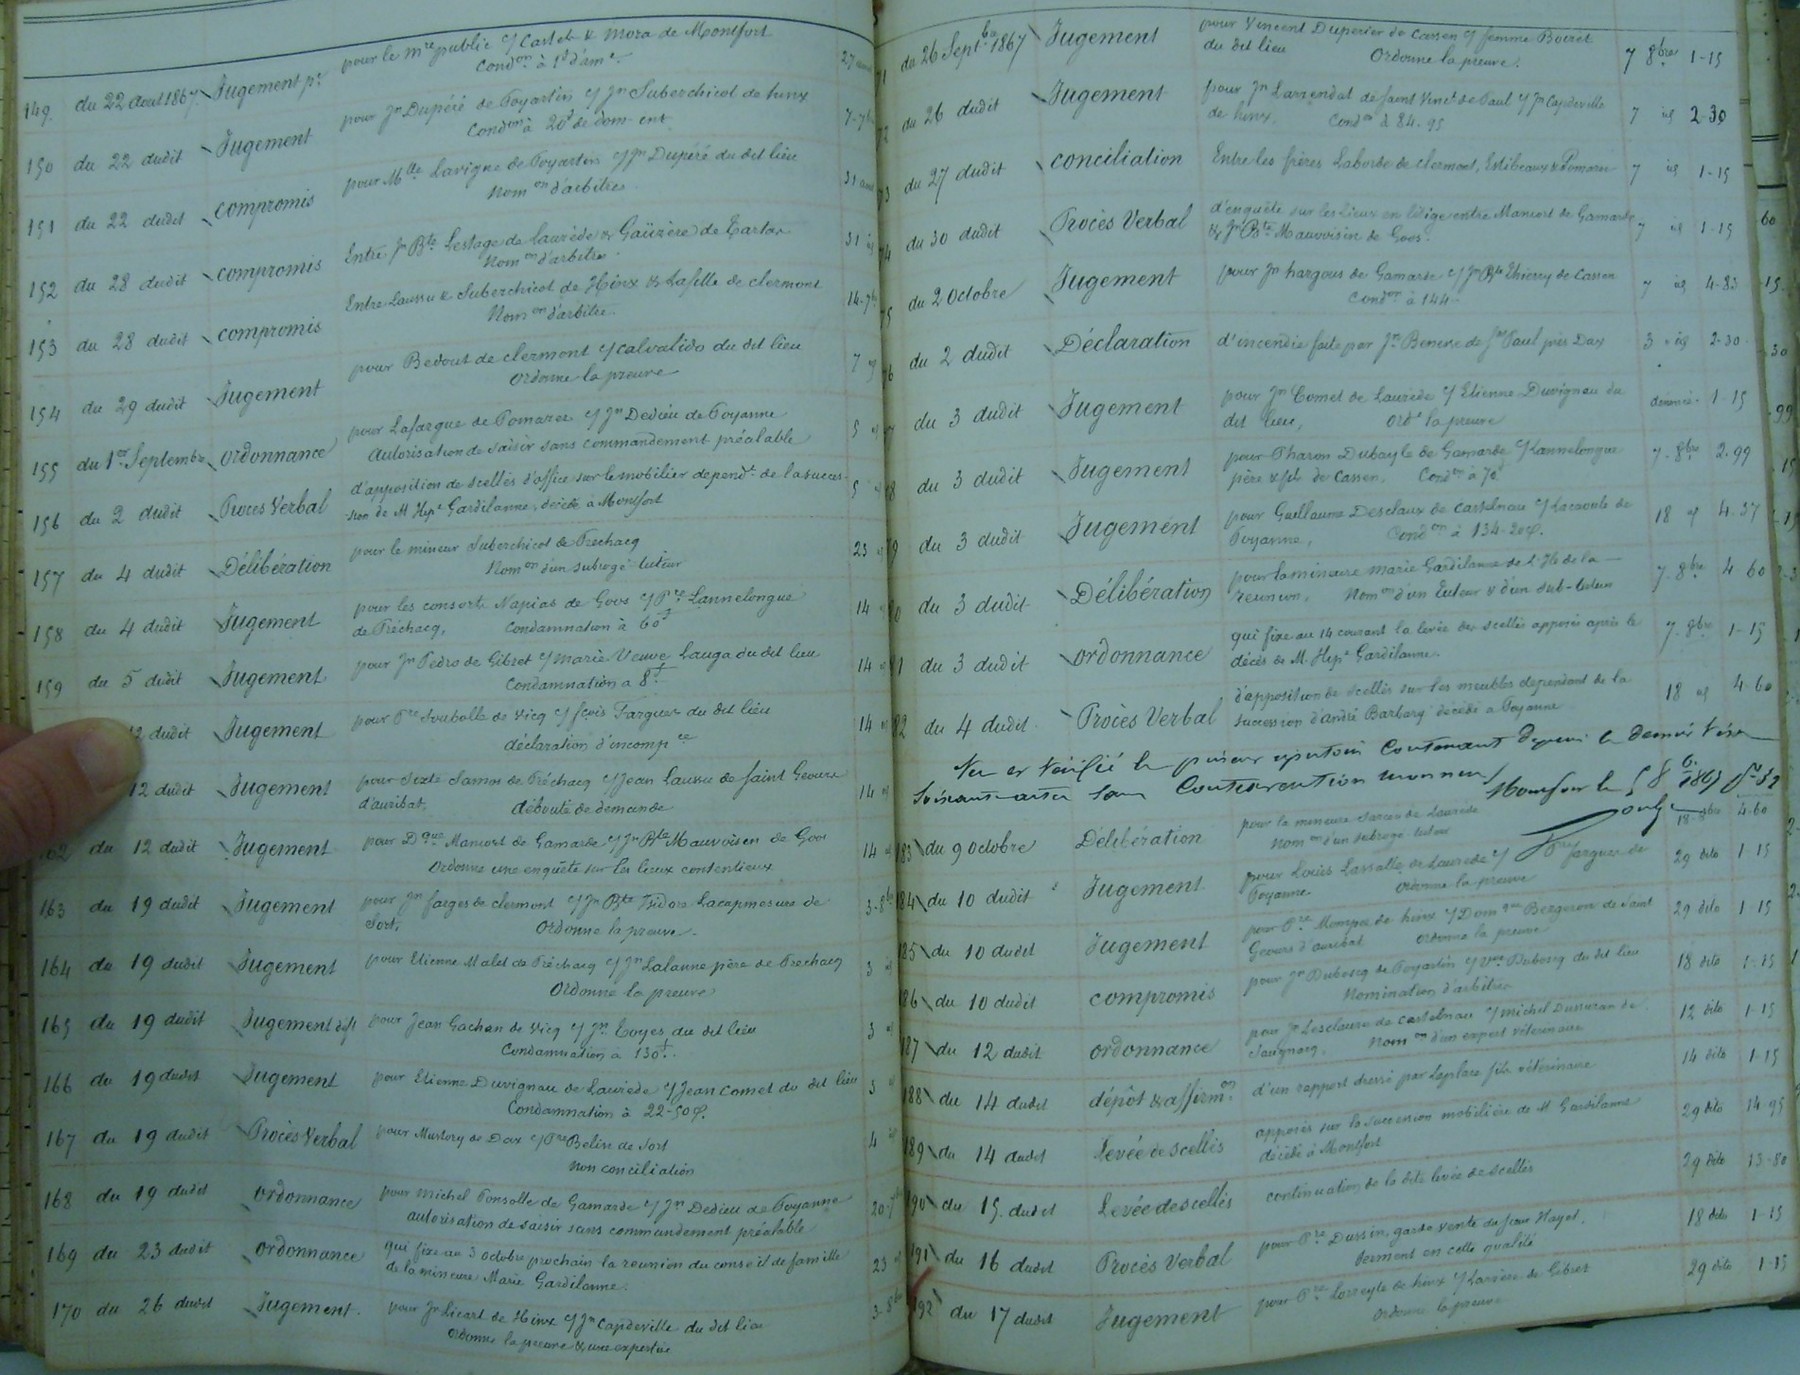 149. du 22 Août 1867. Jugement pr. pour le mre public c/ Castets & Mora de Montfort
Condon à 1f d'ame. 27
150 du 22 dudit Jugement pour Jn Dupéré de Poyartin c/ Jn Suberchicot de hinx
Condon à 20f de dom. ent 7-7bre
151 du 22 dudit compromis pour Mlle Lavigne de Poyartin c/ Jn Dupéré du dit lieu
Nomon d'arbitre 31 aout
152 du 28 dudit compromis Entre Jn Bte Lestage de Laurède & Gaüzère de Tartas
Nomon d'arbitre. 31
153 du 28 dudit compromis Entre Laussu & Suberchicot de Hinx & Lafille de clermont
Nomon d'arbitre. 14-7bre
154 du 29 dudit Jugement pour Bedout de clermont c/ calvalido du dit lieu
Ordonne la preuve 7
155 du 1er Septembre ordonnance pour Lafargue de Pomarez c/ Jn Dedieu de Poyanne
Autorisation de saisir sans commandement préalable 5
156 du 2 dudit Procès Verbal d'apposition de scellés d'office sur le mobilier dépendt de la succes-
-sion de M Hyp.te Gardilanne, décédé à Monfort 5
157 du 4 dudit Délibération pour le mineur Suberchicot de Préchacq
Nomon d'un subrogé-tuteur 23
158 du 4 dudit Jugement pour les consorts Napias de Goos c/ Pre Lannelongue
de Préchacq, Condamnation à 60f 14
159 du 5 dudit Jugement pour Jn Pedro de Gibret c/ marie Veuve Lauga du dit lieu
Condamnation à 8f 14
12 dudit Jugement pour Pre Soubolle de Vicq c/ fçois Farguer du dit lieu
déclaration d'incompce 14
12 dudit Jugement pour Sexte Samos de Préchacq c/ Jean Laussu de Saint Geours
d'auribat, déboute de demande 14
162 du 12 dudit Jugement pour Dque Mancort de Gamarde c/ Jn Bte Mauvoisin de Goos
Ordonne une enquête sur les lieux contentieux 14
163 du 19 dudit Jugement pour Jn farges de clermont c/ Jn Bte Isidore Lacapmesure de
Sort, Ordonne la preuve. 3-8bre
164 du 19 dudit Jugement pour Etienne Malet de Préchacq c/ Jn Lalanne père de Prechacq
Ordonne la preuve 3
165 du 19 dudit Jugement dft pour Jean Gachan de Vicq c/ Jn Goyes du dit lieu
Condamnation à 130f. 3
166 du 19 dudit Jugement pour Etienne Duvignau de Laurède c/ Jean Comet du dit lieu
Condamnation à 22-50c. 3
167 du 19 dudit Procès Verbal pour Mustory de Dax c/ Pre Belin de Sort
Non conciliation 4
168 du 19 dudit ordonnance pour Michel Ponsolle de Gamarde c/ Jn Dedieu de Poyanne
autorisation de saisir sans commandement préalable 20-7
169 du 23 dudit ordonnance qui fixe au 3 octobre prochain la reunion du conseil de famille
de la mineure Marie Gardilanne. 23
170 du 26 dudit Jugement. pour Jn Licart de Hinx c/ Jn Capdeville du dit lieu
Ordonne la preuve & une expertise 3-8bre
71 du 26 Septbre 1867 Jugement pour Vincent Duperier de Cassen c/ femme Boeret
du dit lieu Ordonne la preuve. 7 8bre 1-15
72 du 26 dudit Jugement pour Jn Larrendat de saint Vinct de Paul c/ Jn Capdeville
de hinx. Condon à 84-95 7 id 2-30
73 du 27 dudit conciliation Entre les frères Laborde de clermont, Estibeaux & Pomarez 7 id 1-15
74 du 30 dudit Procès Verbal d'enquête sur les Lieux en litige entre Mancort de Gamarde
& Jn Bte Mauvoisin de Goos. 7 id 1-15
75 du 2 Octobre Jugement pour Jn hargous de Gamarde c/ Jn Bte Thierry de Cassen
Condon à 144- 7 id 4-83
76 du 2 dudit Déclaration d'incendie faite par Jn Benesse de St Paul près Dax 3 id 2-30
du 3 dudit Jugement pour Jn Comet de Laurède c/ Etienne Duvignau du
dit lieu, Ord. la preuve 1-15
78 du 3 dudit Jugement pour Pharon Dubayle de Gamarde c/ Lannelongue
père & fils de Cassen. Condon à 70f 7-8bre 2-99
79 du 3 dudit Jugement pour Guillaume Desclaux de Castelnau c/ Lacoste de
Poyanne, Condon à 134-20c. 18 id 4-37
80 du 3 dudit Délibération pour la mineure Marie Gardilanne de l'Ile de la
reunion, Nomon d'un tuteur & d'un sub-tuteur 7-8bre 4 60
81 du 3 dudit ordonnance qui fixe au 14 courant la levée des scellés apposés après le
décès de M. Hypte Gardilanne. 7-8bre 1-15
82 du 4 dudit Procès Verbal d'apposition de scellés sur les meubles dépendant de la
succession d'andré Barbary décédé à Poyanne 18 id 4-60
Vu et Vérifié le présent répertoire Contenant depuis le dernier Visa
Soixante articles sans Contravention Monfort le 5 8bre 1867
183 du 9 octobre Délibération pour la mineure Sarceu de Laurède
Nomon d'un subrogé-tuteur 18-8bre 4-60
184 du 10 dudit Jugement pour Louis Lassalle de Laurède c/ Pre farguer de
Poyanne. Ordonne la preuve 29 dito 1-15
185 du 10 dudit Jugement pour Pre Momper de hinx c/ Domque Bergeron de Saint
Geours d'auribat Ordonne la preuve 29 dito 1-15
186 du 10 dudit compromis pour Jn Duboscq de Poyartin c/ Vve Duboscq du dit lieu
Nomination d'arbitre 18 dito 1-15
187 du 12 dudit ordonnance pour Jn Lesclaure de castelnau c/ michel Dussurau de
Nomon d'un expert vétérinaire 12 dito 1-15
188 du 14 dudit dépôt & affirmon d'un rapport dressé par Laplace fils vétérinaire 14 dito 1-15
189 du 14 dudit Levée de scellés apposés sur la succession mobilière de M Gardilanne
décédé à Montfort 29 dito 14-95
190 du 15 dudit Levée de scellés continuation de la dite levée de scellés 29 dito 13-80
191 du 16 dudit Procès Verbal pour Pre Dussin, garde vente du sieur Hayet.
Serment en cette qualité 18 dito 1-15
192 du 17 dudit Jugement pour Pre Larreyle de hinx c/ Larrère de Gibret
Ordonne la preuve 29 dito 1-15